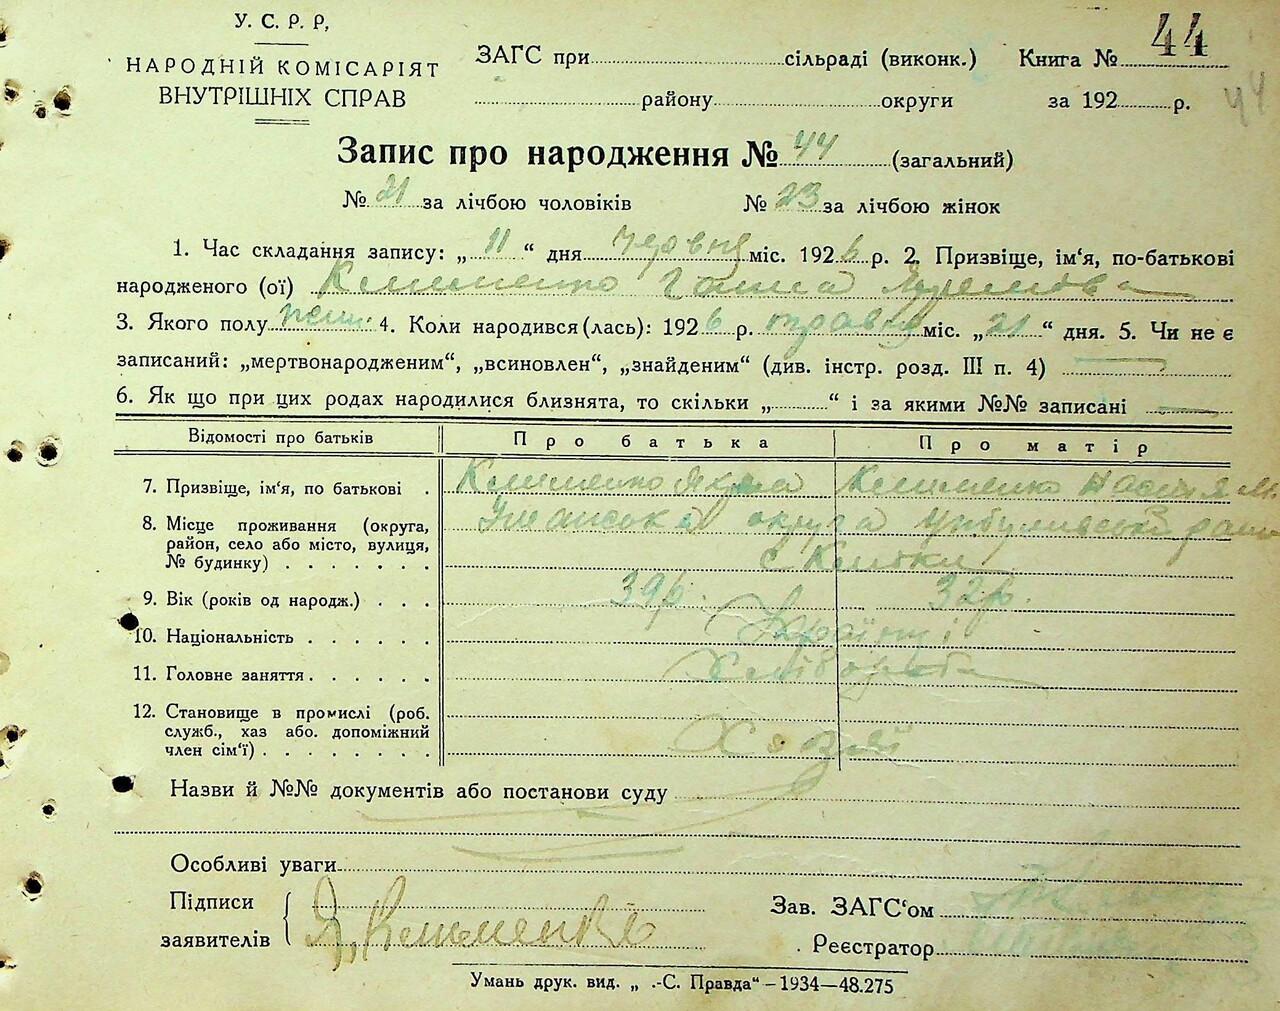 У. С. Р. Р,
НАРОДНІЙ КОМІСАРІЯТ
ВНУТРІШНІХ СПРАВ
ЗАГС при сільраді (виконк.) Книга № 44
району округи за 192 р. 44
Запис про народження № 44 (загальний)
№ 21 за лічбою чоловіків № 23 за лічбою жінок
1. Час складання запису: „ 11 “ дня червня міс. 1926 р. 2. Призвіще, ім‘я, по-батькові
народженого (ої) Клименко Ганна
3. Якого полу жін. 4. Коли народився (лась): 1926 р. травня міс. „ 21 “ дня. 5. Чи не є
записаний: „мертвонародженим“, „всиновлен“, „знайденим“ (див. інстр. розд. III п. 4)
6. Як що при цих родах народилися близнята, то скільки „ “ і за якими №№ записані
Відомості про батьків Про батька Про матір
7. Призвіще, ім‘я, по батькові . Клименко Клименко
8. Місце проживання (округа, Уманська округа
район, село або місто, вулиця,
№ будинку) . . . . . . . с
9. Вік (років од народж.) . . . 39 р. 32 р.
10. Національність . . . . . . Українці
11. Головне заняття . . . . . . Хліборобство
12. Становище в промислі (роб.
служб., хаз або. допоміжний
член сім‘ї) . . . . . . . . Хазяї
Назви й №№ документів або постанови суду
Особливі уваги
Підписи
заявителів Я. Клименко
Зав. ЗАГС‘ом
Реєстратор
Умань друк. вид. „ .-С. Правда“ – 1934—48.275